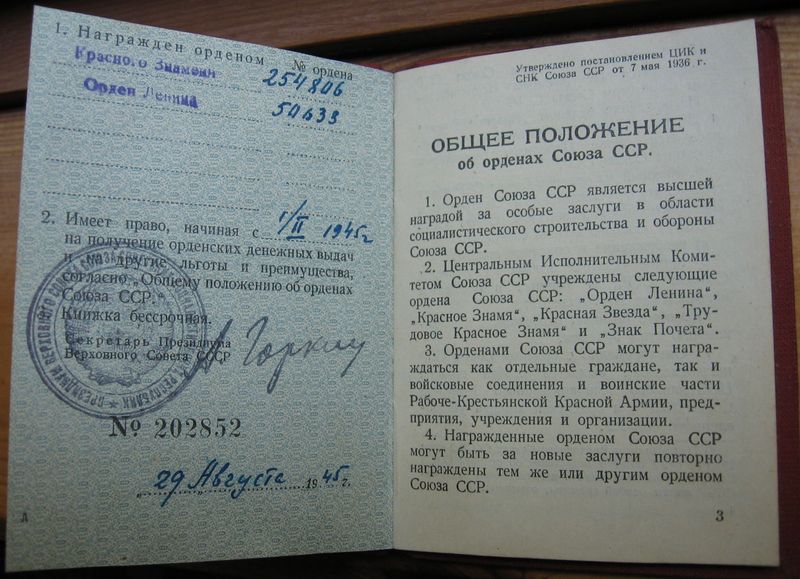 1. Награжден орденом
№ ордена
Красного Знамени 254806
Орден Ленина 50633
2. Имеет право, начиная с 1/II 1945г
на получение орденских денежных выдач
и на другие льготы и преимущества,
согласно „Общему положению об орденах
Союза ССР".
Книжка бессрочная.
Секретарь Президиума
Верховного Совета СССР
А Горкин
№ 202852
„29 Августа 1945 г.
А
Утверждено постановлением ЦИК и
СНК Союза ССР от 7 мая 1936 г.
ОБЩЕЕ ПОЛОЖЕНИЕ
об орденах Союза ССР.
1. Орден Союза ССР является высшей
наградой за особые заслуги в области
социалистического строительства и обороны
Союза ССР.
2. Центральным Исполнительным Коми-
тетом Союза ССР учреждены следующие
ордена Союза ССР: „Орден Ленина",
„Красное Знамя", „Красная Звезда", „Тру-
довое Красное Знамя" и „Знак Почета".
3. Орденами Союза ССР могут награ-
ждаться как отдельные граждане, так и
войсковые соединения и воинские части
Рабоче-Крестьянской Красной Армии, пред-
приятия, учреждения и организации.
4. Награжденные орденом Союза ССР
могут быть за новые заслуги повторно
награждены тем же или другим орденом
Союза ССР.
3